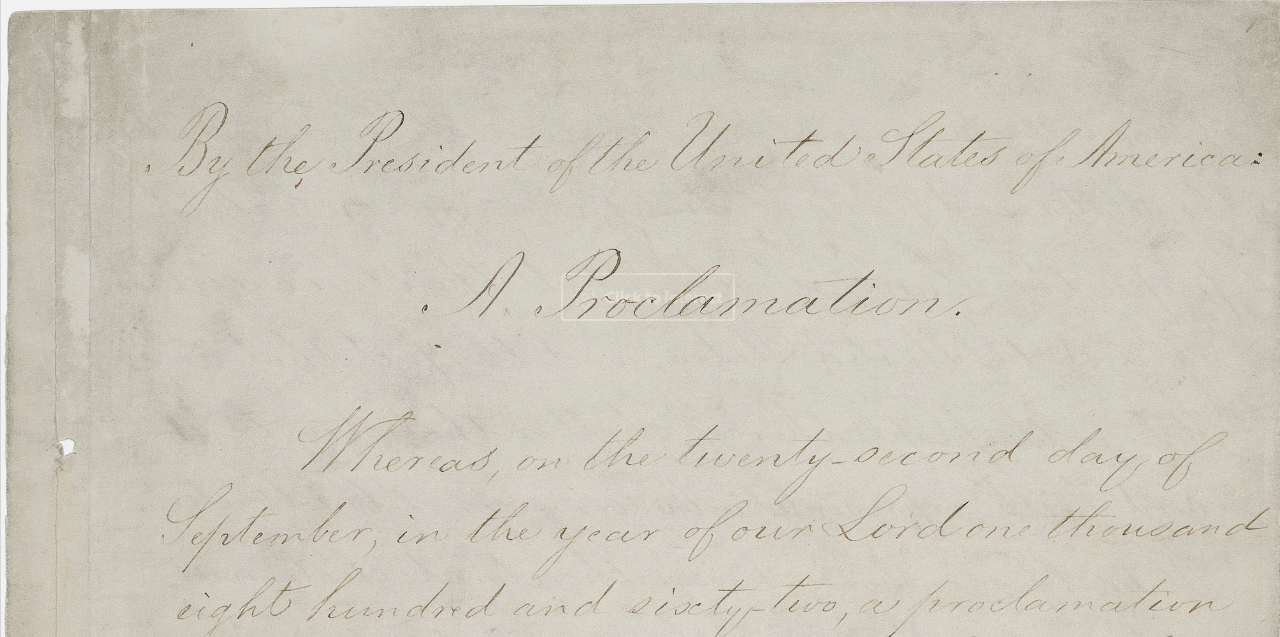 By the President of the United States of America:
A Proclamation.
Whereas, on the twenty-second day of
September, in the year of our Lord one thousand
eight hundred and sixty-two, a proclamation